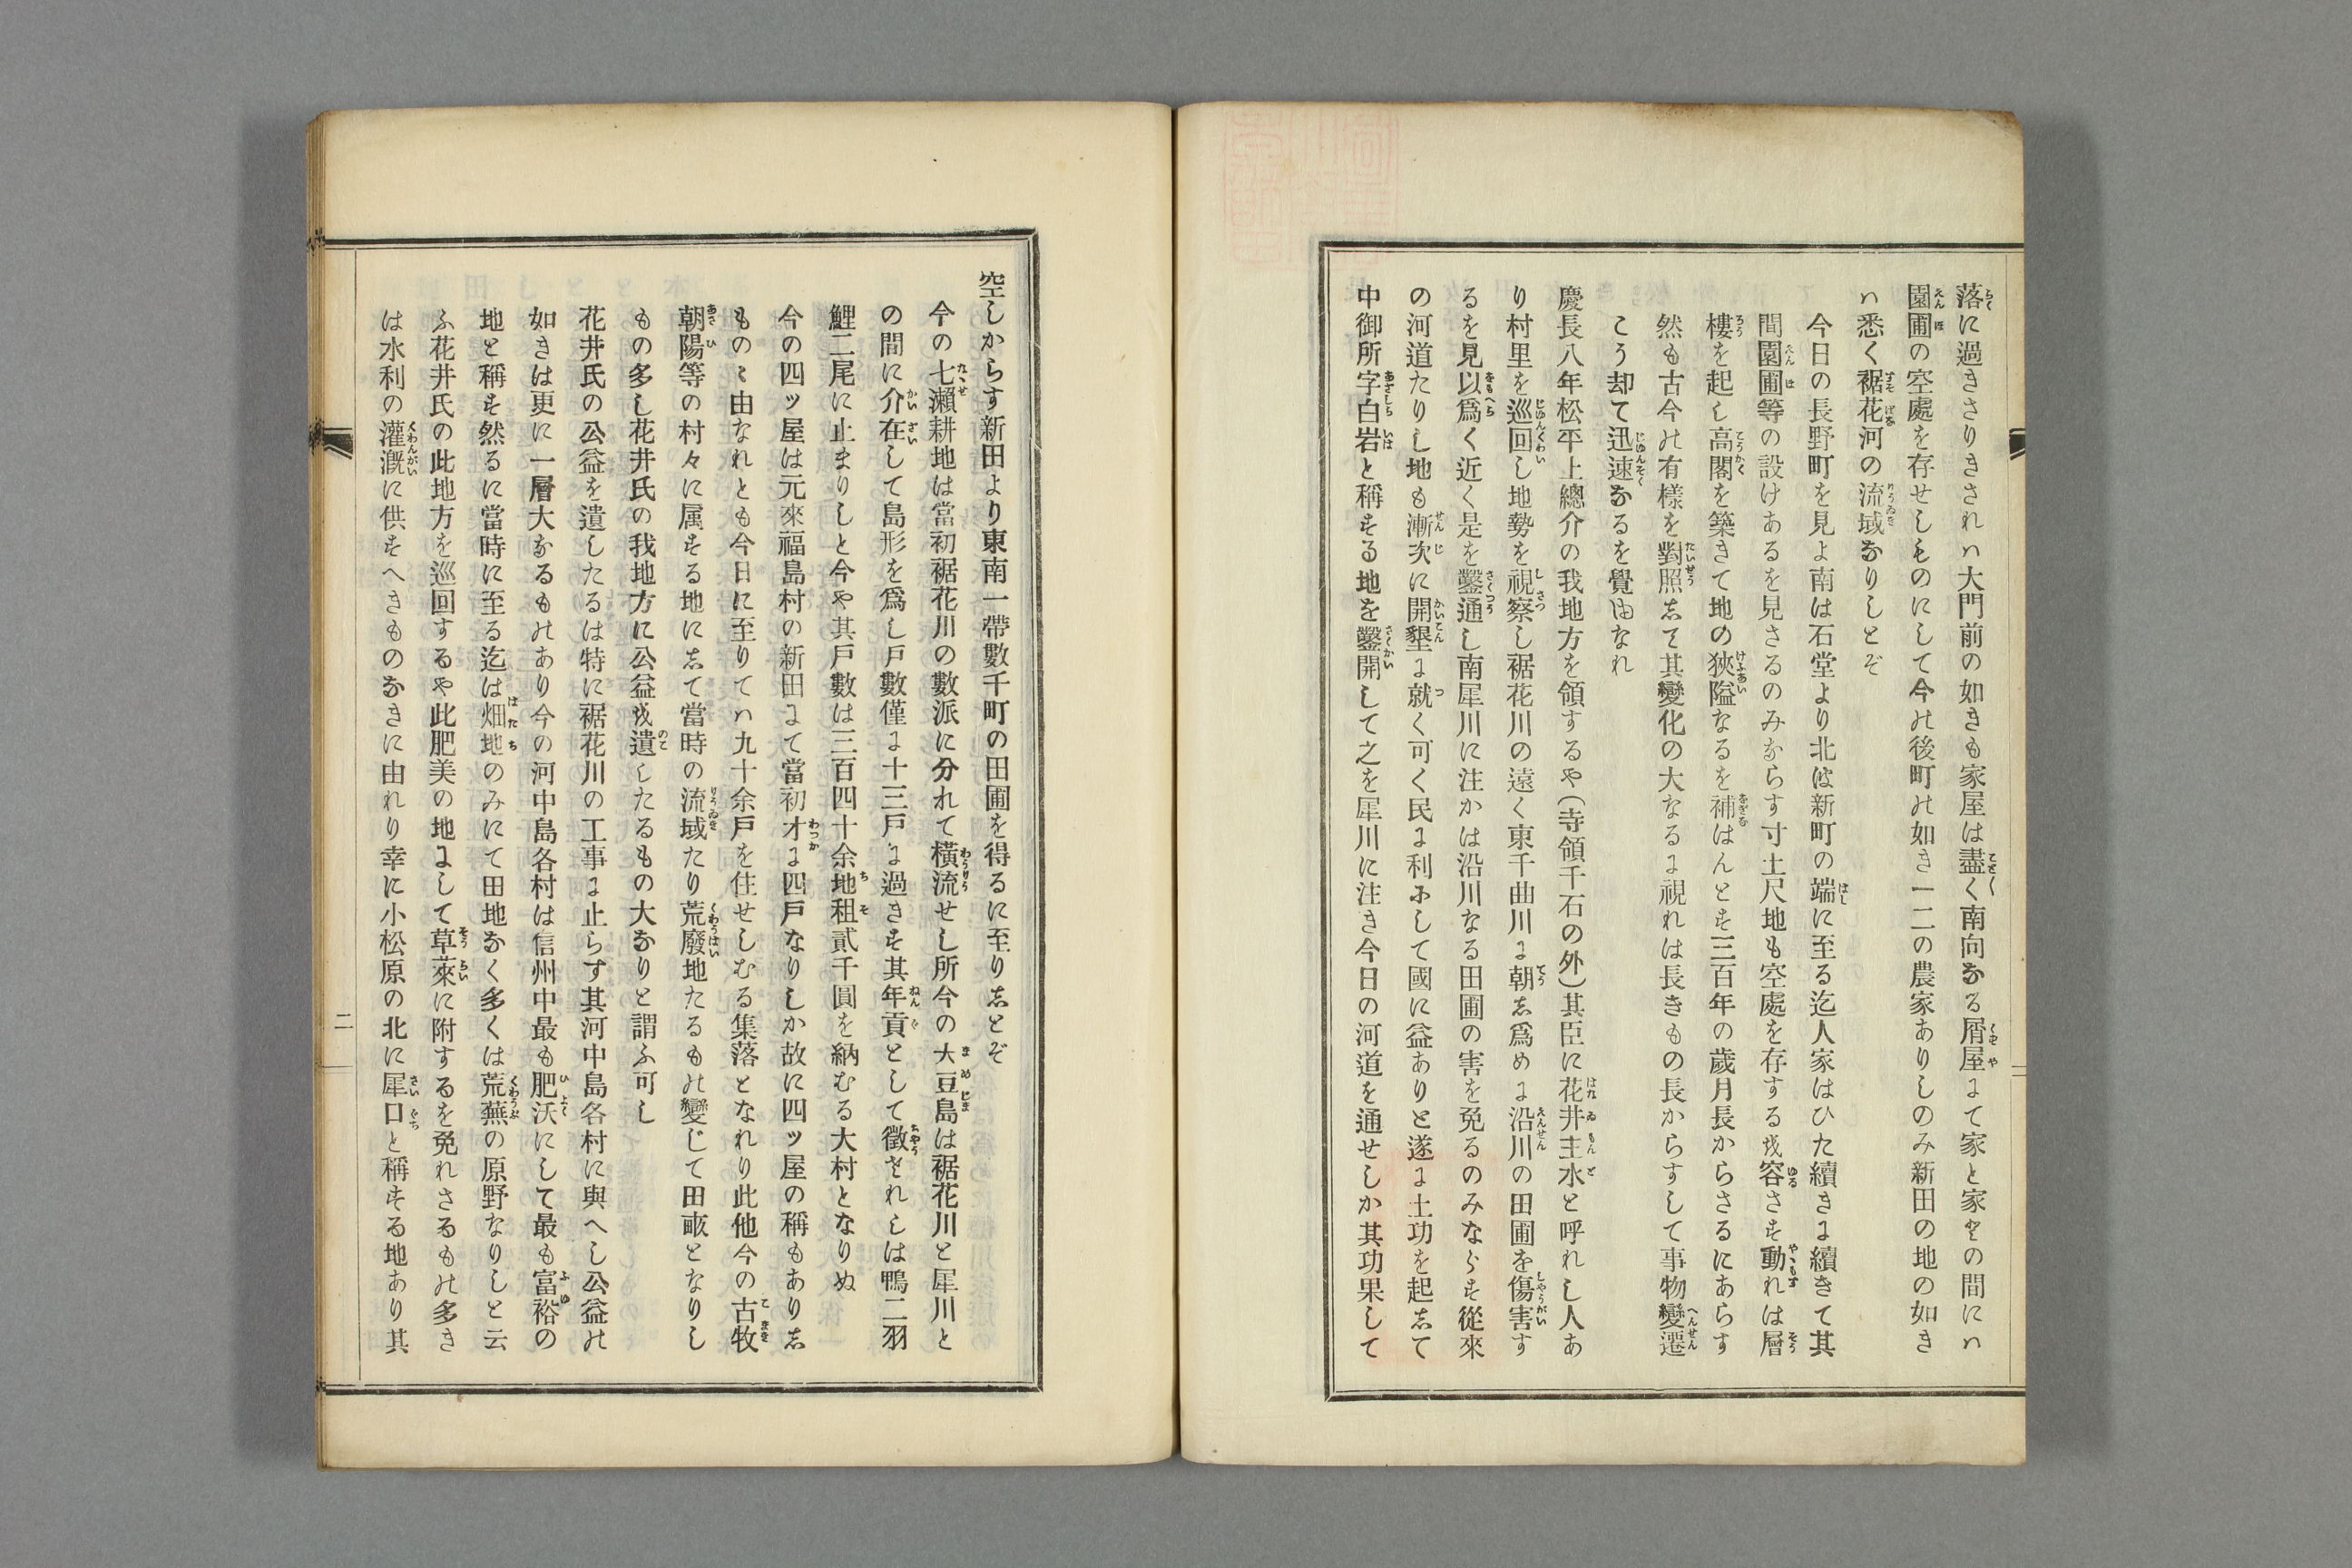 落に過きさりきされハ大門前の如きも家屋は盡く南向なる屑屋にて家と家との間にハ
園圃の空處を存せしものにして今の後町の如き一二の農家ありしのみ新田の地の如き
ハ悉く裾花河の流域なりしとぞ
今日の長野町を見よ南は石堂より北は新町の端に至る迄人家はひた續きに續きて其
間園圃等の設けあるを見さるのみならす寸土尺地も空處を存するを容さす動れは層
樓を起し高閣を築きて地の狹隘なるを補はんとす三百年の歲月長からさるにあらす
然も古今の有樣を對照して其變化の大なるに視れは長きもの長からすして事物變遷
こう却て迅速なるを覺ゆなれ
慶長八年松平上總介の我地方を領するや(寺領千石の外)其臣に花井主水と呼れし人あ
り村里を巡回し地勢を視察し裾花川の遠く東千曲川に朝し爲めに沿川の田圃を傷害す
るを見以爲く近く是を鑿通し南犀川に注かは沿川なる田圃の害を免るのみならす從來
の河道たりし地も漸次に開墾に就く可く民に利ふして國に益ありと遂に土功を起して
中御所字白岩と稱する地を鑿開して之を犀川に注き今日の河道を通せしか其功果して
空しからす新田より東南一帶數千町の田圃を得るに至りしとぞ
今の七瀨耕地は當初裾花川の數派に分れて橫流せし所今の大豆島は裾花川と犀川と
の間に介在して島形を爲し戶數僅に十三戶に過きす其年貢として徵されしは鴨二羽
鯉二尾に止まりしと今や其戶數は三百四十余地租貳千圓を納むる大村となりぬ
今の四ッ屋は元來福島村の新田にて當初才に四戶なりしか故に四ッ屋の稱もありし
ものゝ由なれとも今日に至りてハ九十余戶を住せしむる集落となれり此他今の古牧
朝陽等の村々に属する地にして當時の流域たり荒廢地たるもの變じて田畝となりし
もの多し花井氏の我地方に公益を遺したるもの大なりと謂ふ可し
花井氏の公益を遺したるは特に裾花川の工事に止らす其河中島各村に與へし公益の
如きは更に一層大なるものあり今の河中島各村は信州中最も肥沃にして最も富裕の
地と稱す然るに當時に至る迄は畑地のみにて田地なく多くは荒蕪の原野なりしと云
ふ花井氏の此地方を巡回するや此肥美の地にして草萊に附するを免れさるもの多き
は水利の灌漑に供すへきものなきに由れり幸に小松原の北に犀口と稱する地あり其
二